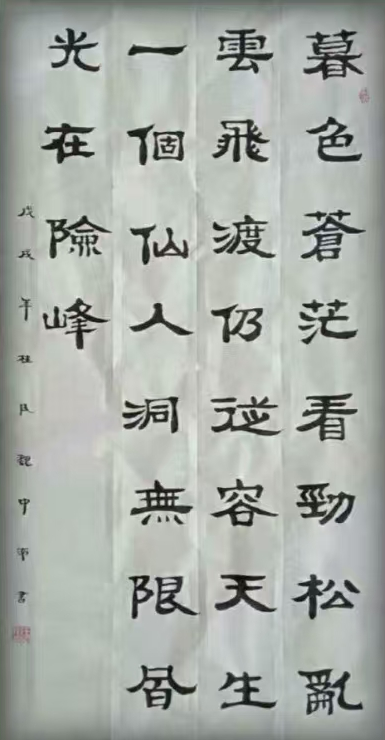 暮色蒼茫看勁松亂
雲飛渡仍從容天生
一個仙人洞無限
光在險峰
戊戌年桂月魏書